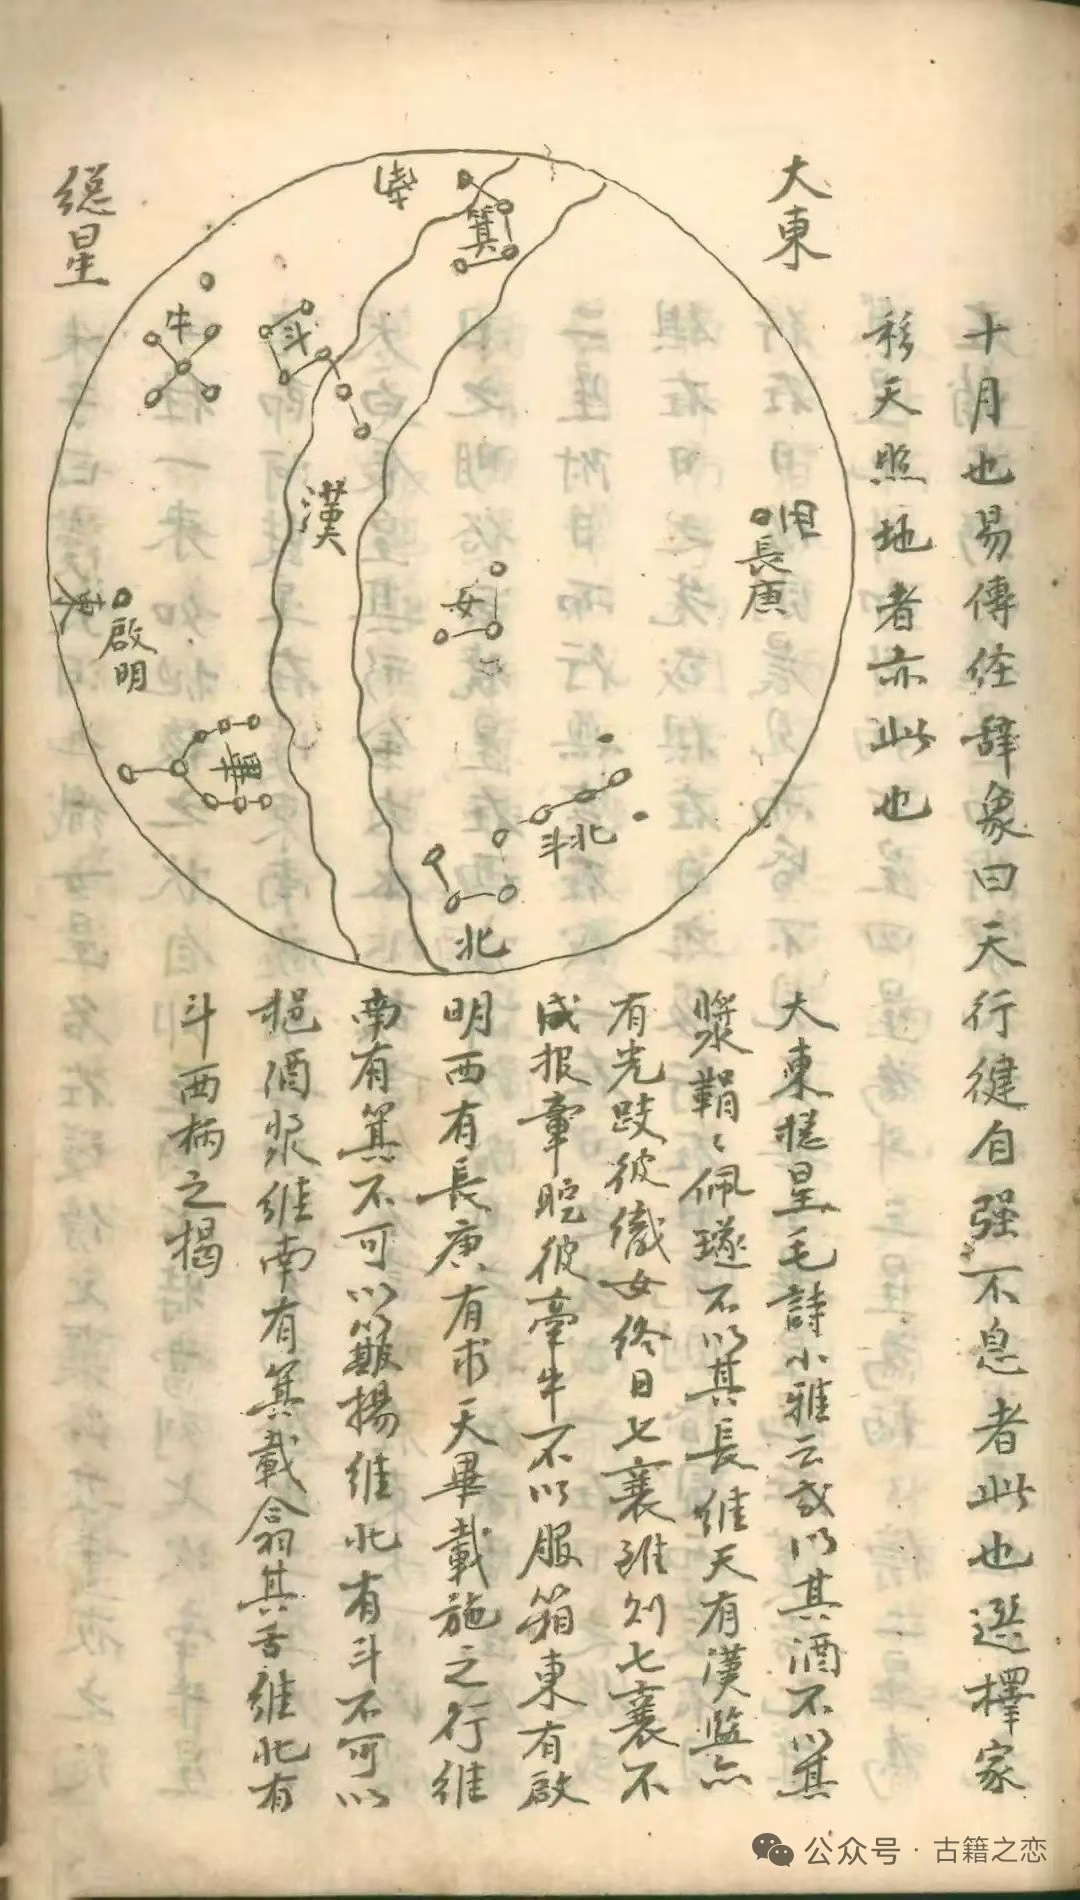 十月也易傳往辞象曰天行健自强不息者此也選擇家
移天照地者亦此也
大東
總星
南
箕
斗
牛
漢
西
長庚
女
東
啟明
畢
北斗
北
大東總星毛詩小雅云或以其酒不以其
漿鞙〻佩璲不以其長維天有漢監亦
有光跂彼織女終日七襄雖則七襄不
成报章睆彼牽牛不以服箱東有啟
明西有長庚有求天畢載施之行維
南有箕不可以簸揚維北有斗不可以
挹酒漿維南有箕載翕其舌維北有
斗西柄之揭
公众号·古籍之恋